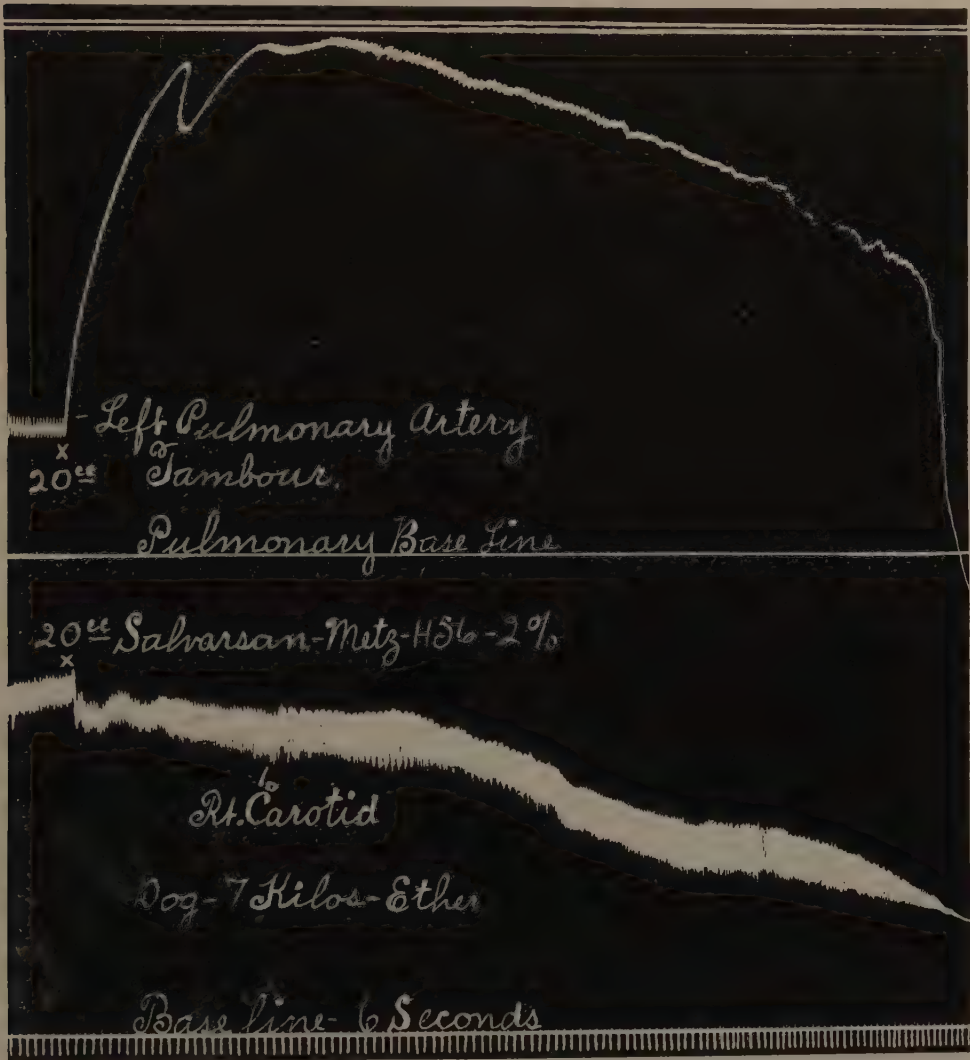 Left Pulmonary Artery
x
20cc Tambour.
Pulmonary Base Line
20cc Salvarsan-Metz-H56-2%
x
Rt. Carotid
Dog-7 Kilos-Ether
Base line-6 Seconds